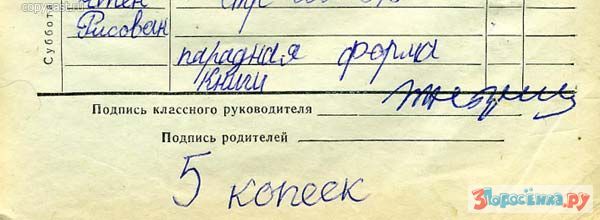 copypast.ru
Суббота
Чтен
Рисован
парадная форма
книги
Подпись классного руководителя
Подпись родителей
5 копеек
3Поросёнка.ру